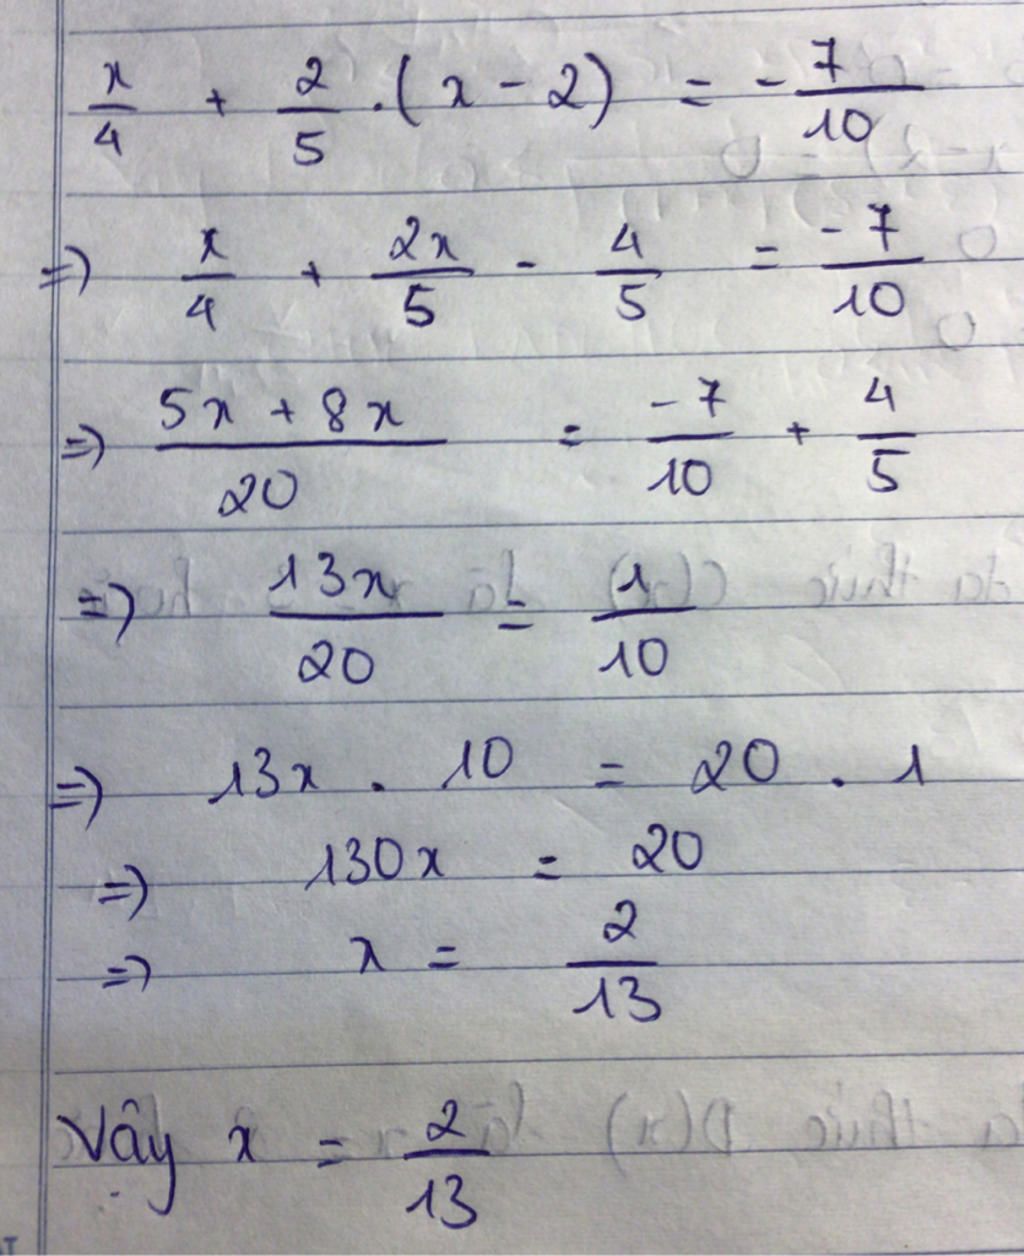 x/4 + 2/5 . (x - 2) = -7/10
=) x/4 + 2x/5 - 4/5 = -7/10
=) (5x + 8x)/20 = -7/10 + 4/5
=) 13x/20 = 1/10
=) 13x . 10 = 20 . 1
=) 130x = 20
=) x = 2/13
Vậy x = 2/13